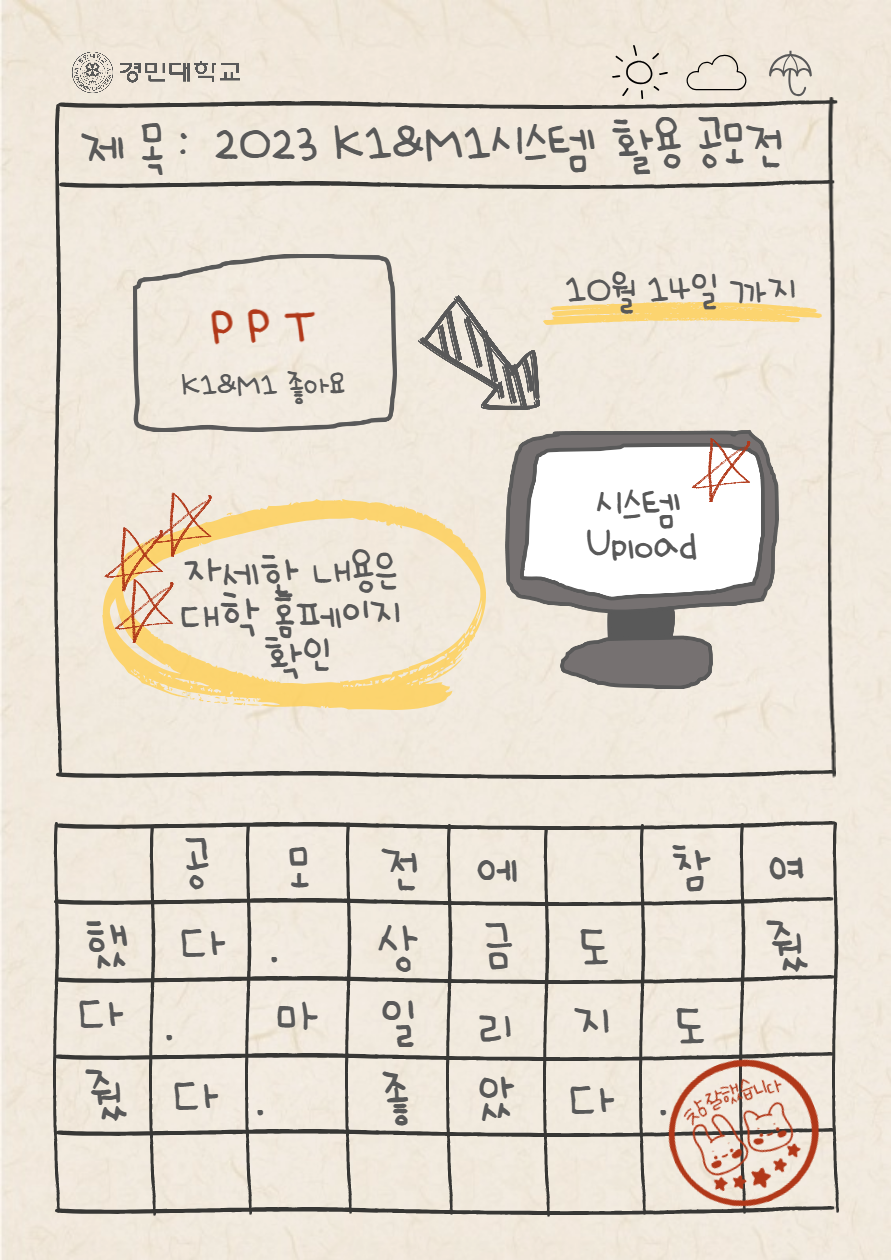 경민대학교
제 목 : 2023 K1&M1시스템 활용 공모전
PPT
K1&M1 좋아요
10월 14일 까지
시스템
Upload
자세한 내용은
대학 홈페이지
확인
공모전에 참여
했다. 상금도 줬
다. 마일리지도
줬다. 좋았다.
참 잘했습니다